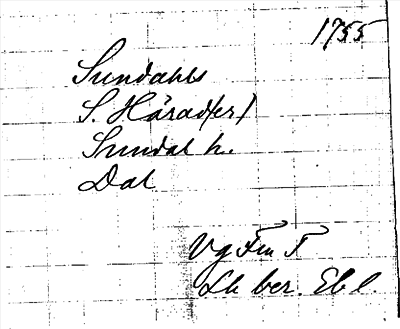 1755
Sundahls
S. Härad(er)
Sundal h.
Dal
Vg Fm T
Lh ber. Ebl.